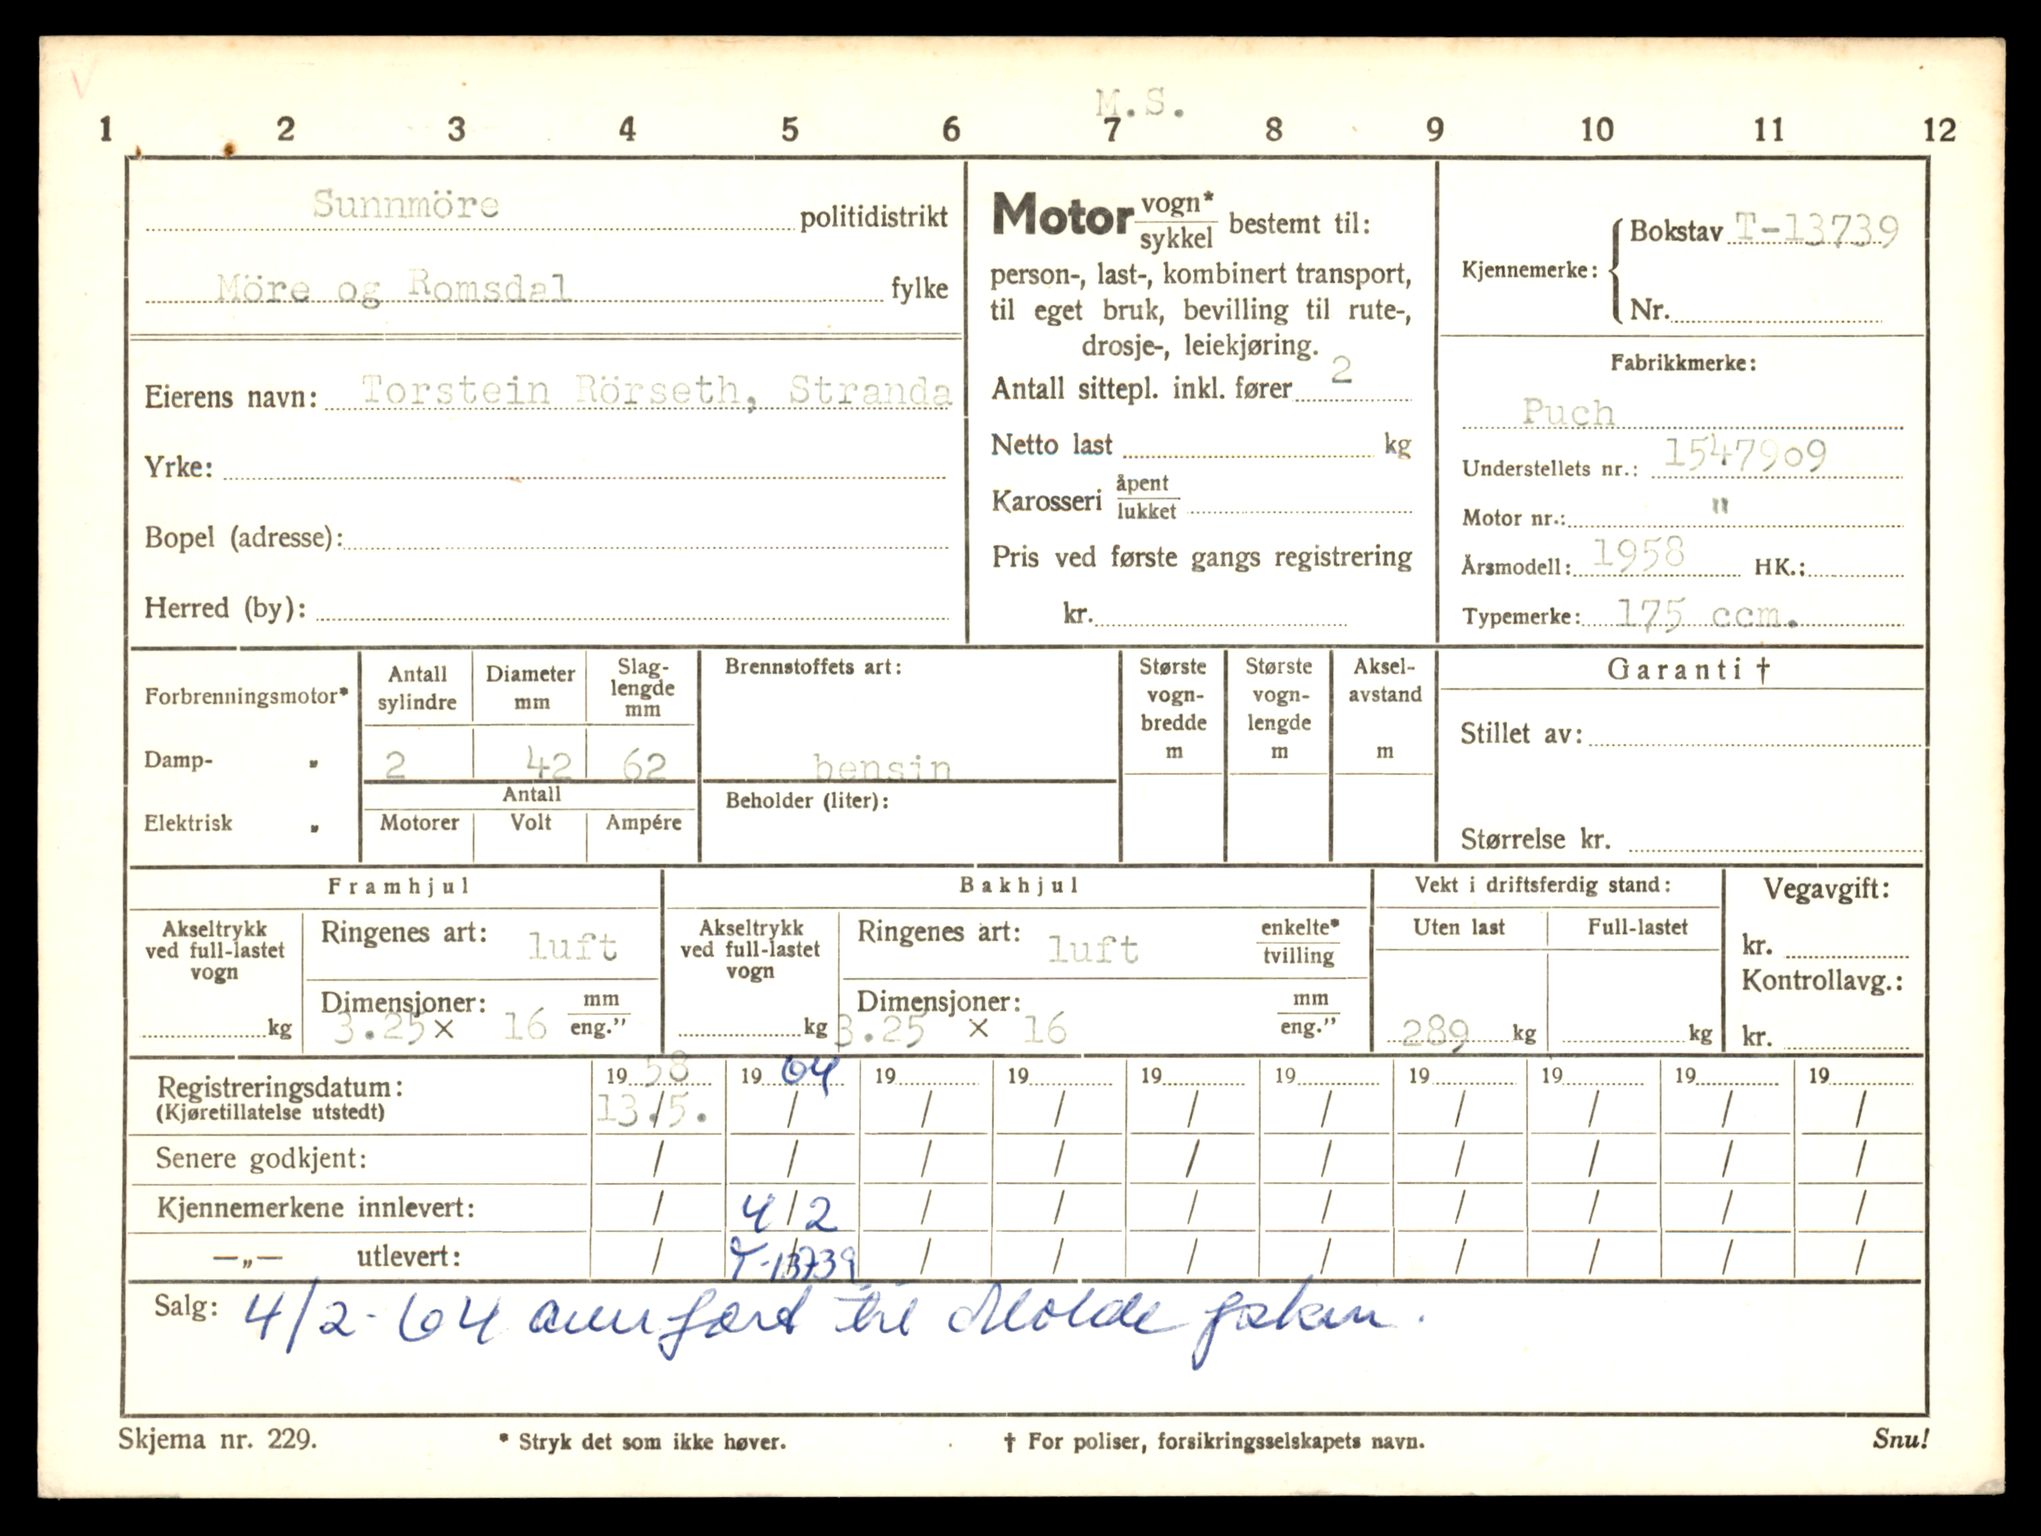 M.S.
1 2 3 4 5 6 7 8 9 10 11 12
Sunnmöre politidistrikt
Möre og Romsdal fylke
Eierens navn: Torstein Rörseth, Stranda
Yrke:
Bopel (adresse):
Herred (by):
Motor vogn* / sykkel bestemt til:
person-, last-, kombinert transport,
til eget bruk, bevilling til rute-,
drosje-, leiekjøring.
Antall sittepl. inkl. fører 2
Netto last kg
Karosseri åpent / lukket
Pris ved første gangs registrering
kr.
Kjennemerke: { Bokstav T-13739
Nr.
Fabrikkmerke:
Puch
Understellets nr.: 1547909
Motor nr.: "
Årsmodell: 1958 HK.:
Typemerke: 175 ccm.
Forbrenningsmotor*
Damp- „
Elektrisk „
Antall sylindre Diameter mm Slag-lengde mm
2 42 62
Antall
Motorer Volt Ampére
Brennstoffets art:
bensin
Beholder (liter):
Største vogn-bredde m
Største vogn-lengde m
Aksel-avstand m
Garanti †
Stillet av:
Størrelse kr.
Framhjul
Akseltrykk ved full-lastet vogn
kg
Ringenes art: luft
Dimensjoner: mm / eng."
3.25 × 16
Bakhjul
Akseltrykk ved full-lastet vogn
kg
Ringenes art: luft enkelte* / tvilling
Dimensjoner: mm / eng."
3.25 × 16
Vekt i driftsferdig stand:
Uten last Full-lastet
289 kg kg
Vegavgift:
kr.
Kontrollavg.:
kr.
Registreringsdatum: 19 58 19 64 19 19 19 19 19 19 19 19
(Kjøretillatelse utstedt) 13./5. / / / / / / / / /
Senere godkjent: / / / / / / / / / /
Kjennemerkene innlevert: / 4/2 / / / / / / / /
—„— utlevert: / T-13739 / / / / / / / /
Salg: 4/2-64 overført til Molde
Skjema nr. 229. * Stryk det som ikke høver. † For poliser, forsikringsselskapets navn. Snu!